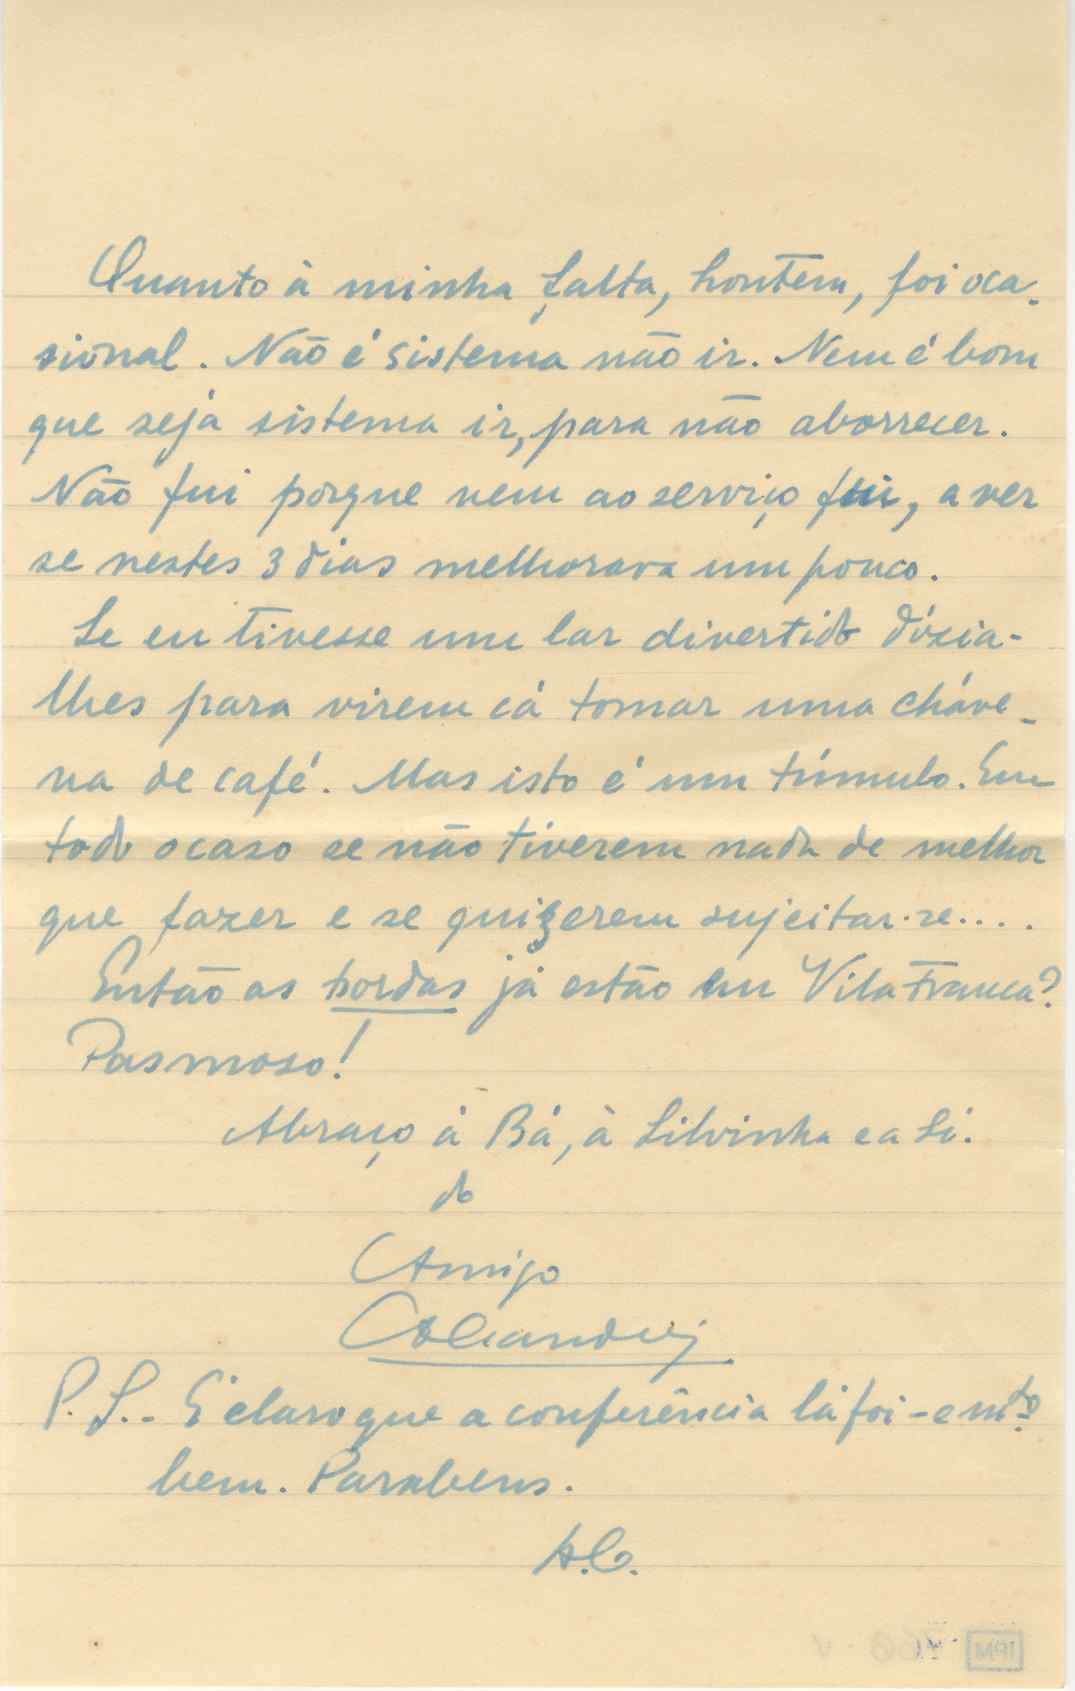 Quanto à minha falta, hontem, foi oca-
sional. Não é sistema não ir. Nem é bom
que seja sistema ir, para não aborrecer.
Não fui porque nem ao serviço fui, a ver
se nestes 3 dias melhorava um pouco.
Se eu tivesse um lar divertido dizia-
lhes para virem cá tomar uma cháve-
na de café. Mas isto é um túmulo. Em
todo o caso se não tiverem nada de melhor
que fazer e se quizerem sujeitar-se....
Então as bordas já estão em Vila Franca?
Pasmoso!
Abraço á Bá, à Silvinha e a Si.
do
Amigo
P.S. - É claro que a conferência lá foi - e mto
bem. Parabens.
A.C.
IPM